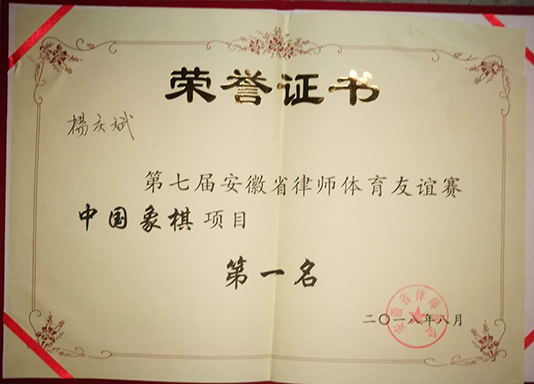 荣誉证书
杨庆斌
第七届安徽省律师体育友谊赛
中国象棋项目
第一名
二〇一八年八月
安徽省律师